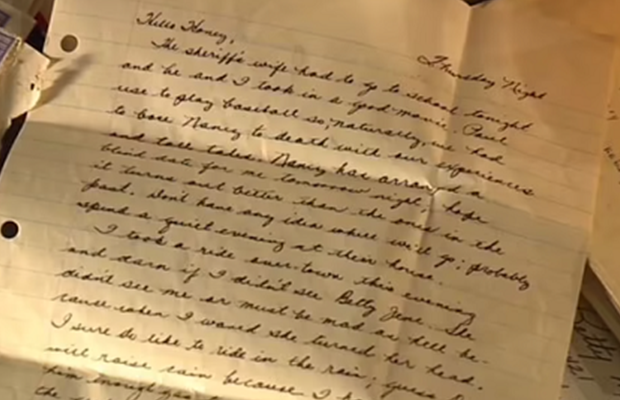 Thursday Night
Hello Honey,
The sheriff's wife had to go to school tonight
and he and I took in a good movie. Paul
use to play baseball so, naturally, we had
to bore Nancy to death with our experiences
and tall tales. Nancy has arranged a
blind date for me tomorrow night, hope
it turns out better than the ones in the
past. Don't have any idea where we'll go; probably
spend a quiet evening at their house.
I took a ride over-town this evening
and darn if I didn't see Betty Jane. She
didn't see me or must be mad as hell be-
cause when I waved she turned her head.
I sure do like to ride in the rain; guess
will raise cain because I
him enough gas
the